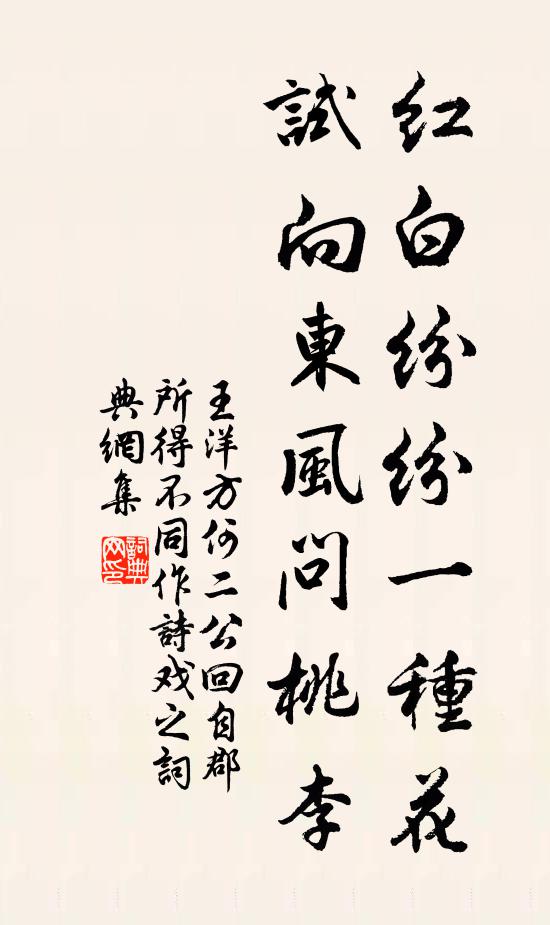 紅白紛紛一種花
試向東風問桃李
王洋方何二公回自郡
所得不同作詩戏之詞
典網集
詞典网印